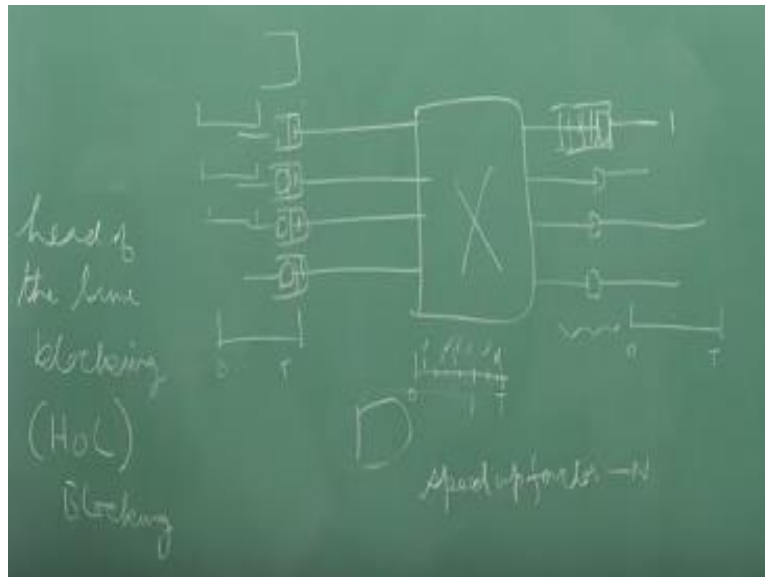 head of
the line
blocking
(HoL)
Blocking
X
1
0 T
0 T
0 T
D
speed up factor - N